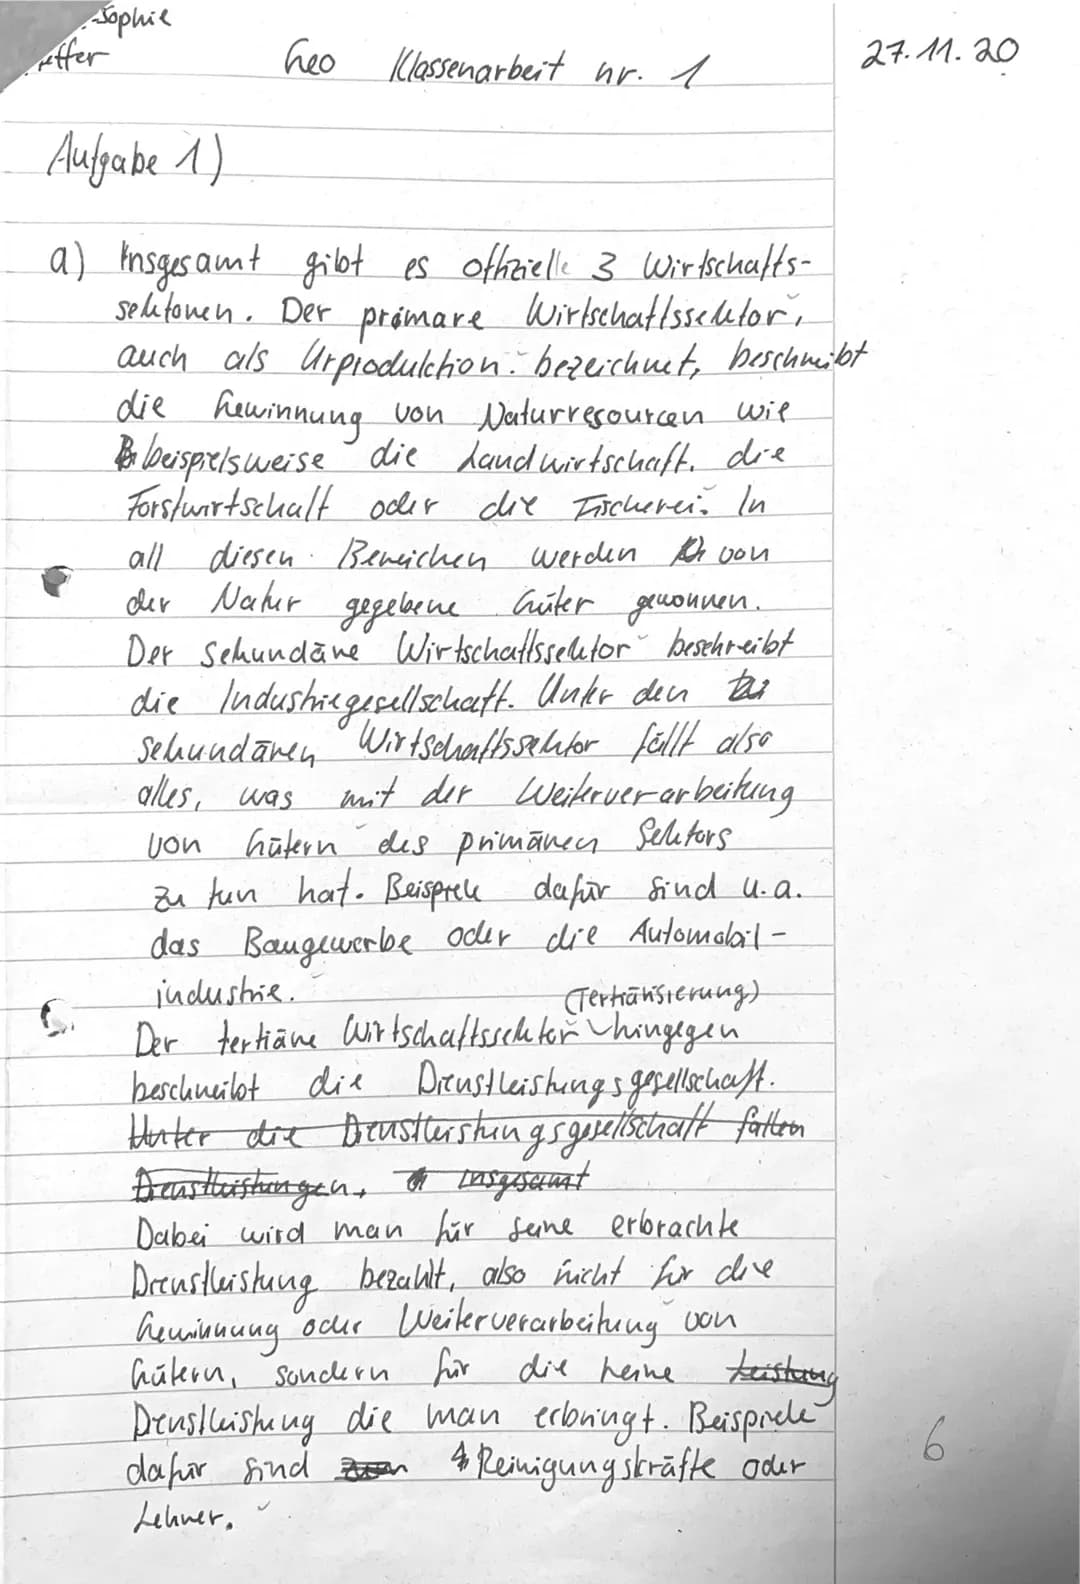 Sophie
effer
Geo Klassenarbeit nr. 1
27.11.20
Aufgabe 1)
a) Insgesamt gibt es offizielle 3 Wirtschafts-
sektoren. Der primäre Wirtschaftssektor,
auch als Urproduktion bezeichnet, beschreibt
die Gewinnung von Naturresourcen wie
beispielsweise die Landwirtschaft, die
Forstwirtschaft oder die Fischerei. In
all diesen Bereichen werden von
der Natur gegebene Güter gewonnen.
Der sekundäre Wirtschaftssektor beschreibt
die Industriegesellschaft. Unter den
sekundären Wirtschaftssektor fällt also
alles, was mit der Weiterverarbeitung
von Gütern des primären Sektors
zu tun hat. Beispiele dafür sind u.a.
das Baugewerbe oder die Automobil-
industrie.
(Tertiärisierung)
Der tertiäre Wirtschaftssektor hingegen
beschreibt die Dienstleistungsgesellschaft.
Unter die Dienstleistungsgesellschaft fallen
Dienstleistungen, insgesamt
Dabei wird man für seine erbrachte
Dienstleistung bezahlt, also nicht für die
Gewinnung oder Weiterverarbeitung von
Gütern, sondern für die reine Leistung
Dienstleistung die man erbringt. Beispiele
dafür sind Reinigungskräfte oder
Lehrer.
6